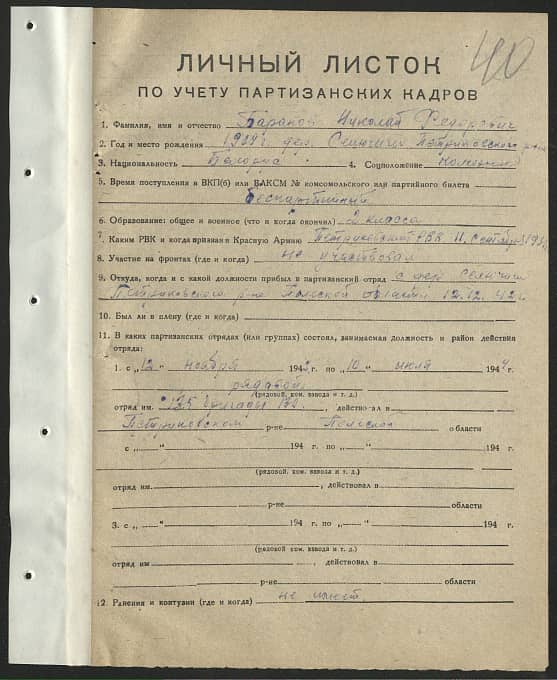 40
ЛИЧНЫЙ ЛИСТОК
ПО УЧЕТУ ПАРТИЗАНСКИХ КАДРОВ
1. Фамилия, имя и отчество Баранов Николай Федорович
2. Год и место рождения дер. Сенчичи Петриковского р-на
3. Национальность Белорус 4. Соцположение
5. Время поступления в ВКП(б) или ВЛКСМ № комсомольского или партийного билета
беспартийный
6. Образование: общее и военное (что и когда окончил) 2 класса
7. Каким РВК и когда призван в Красную Армию Петриковский РВК 11. сентября
8. Участие на фронтах (где и когда) не участвовал
9. Откуда, когда и с какой должности прибыл в партизанский отряд с дер. Сенчичи
Петриковского р-на Полесской области 12.12.42г
10. Был ли в плену (где и когда)
11. В каких партизанских отрядах (или группах) состоял, занимаемая должность и район действия
отряда:
1. с „12" ноября 194 г. по „10" июля 194 4.
рядовой
(рядовой, ком. взвода и т. д.)
отряд им. 125 бригады , действовал в
Петриковском р-не Полесской области
с „ " 194 г. по „ " 194 г.
(рядовой, ком. взвода и т. д.)
отряд им. , действовал в
р-не области
3. с „ " 194 г. по „ " 194 г.
(рядовой ком. взвода и т. д.)
отряд им , действовал в
р-не области
12. Ранения и контузии (где и когда) не имеет.